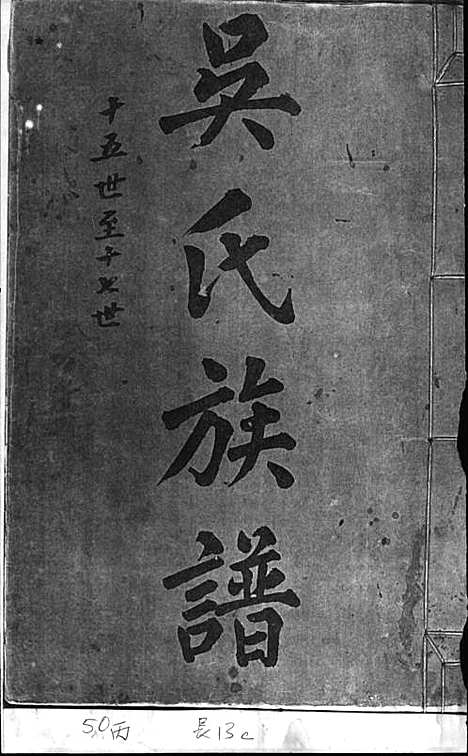 吳氏族譜
十五世至十七世
50丙 長13c